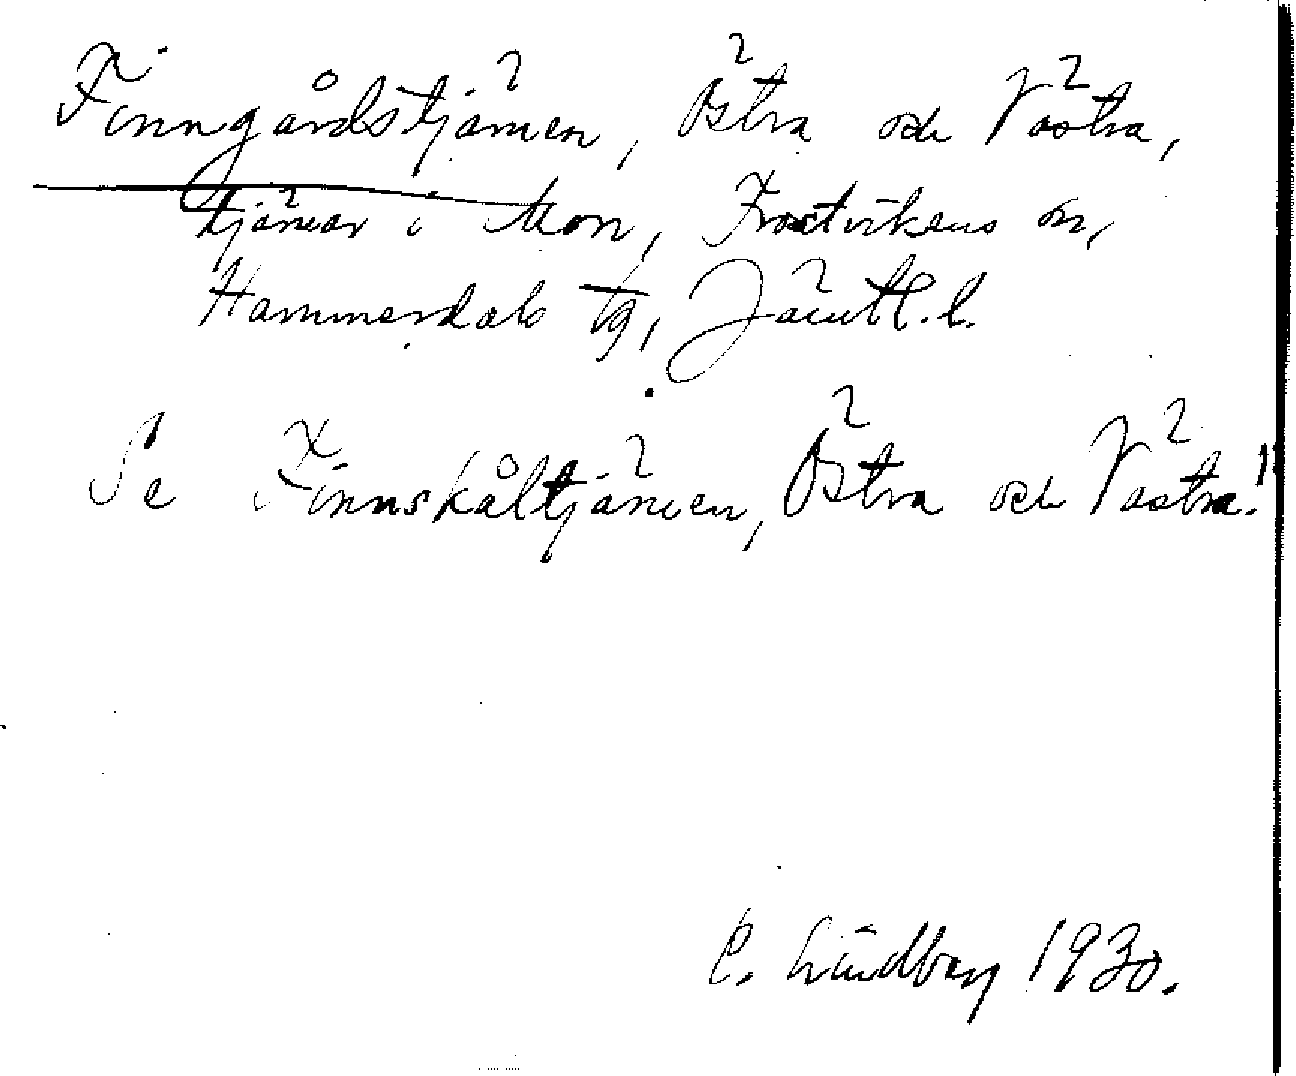 Finngårdstjärnen, Östra och Västra,
tjärnar i Mon, Frostvikens sn,
Hammerdals tg, Jämtl. l.
Se Finnskåltjärnen, Östra och Västra!
C. Lindberg 1930.